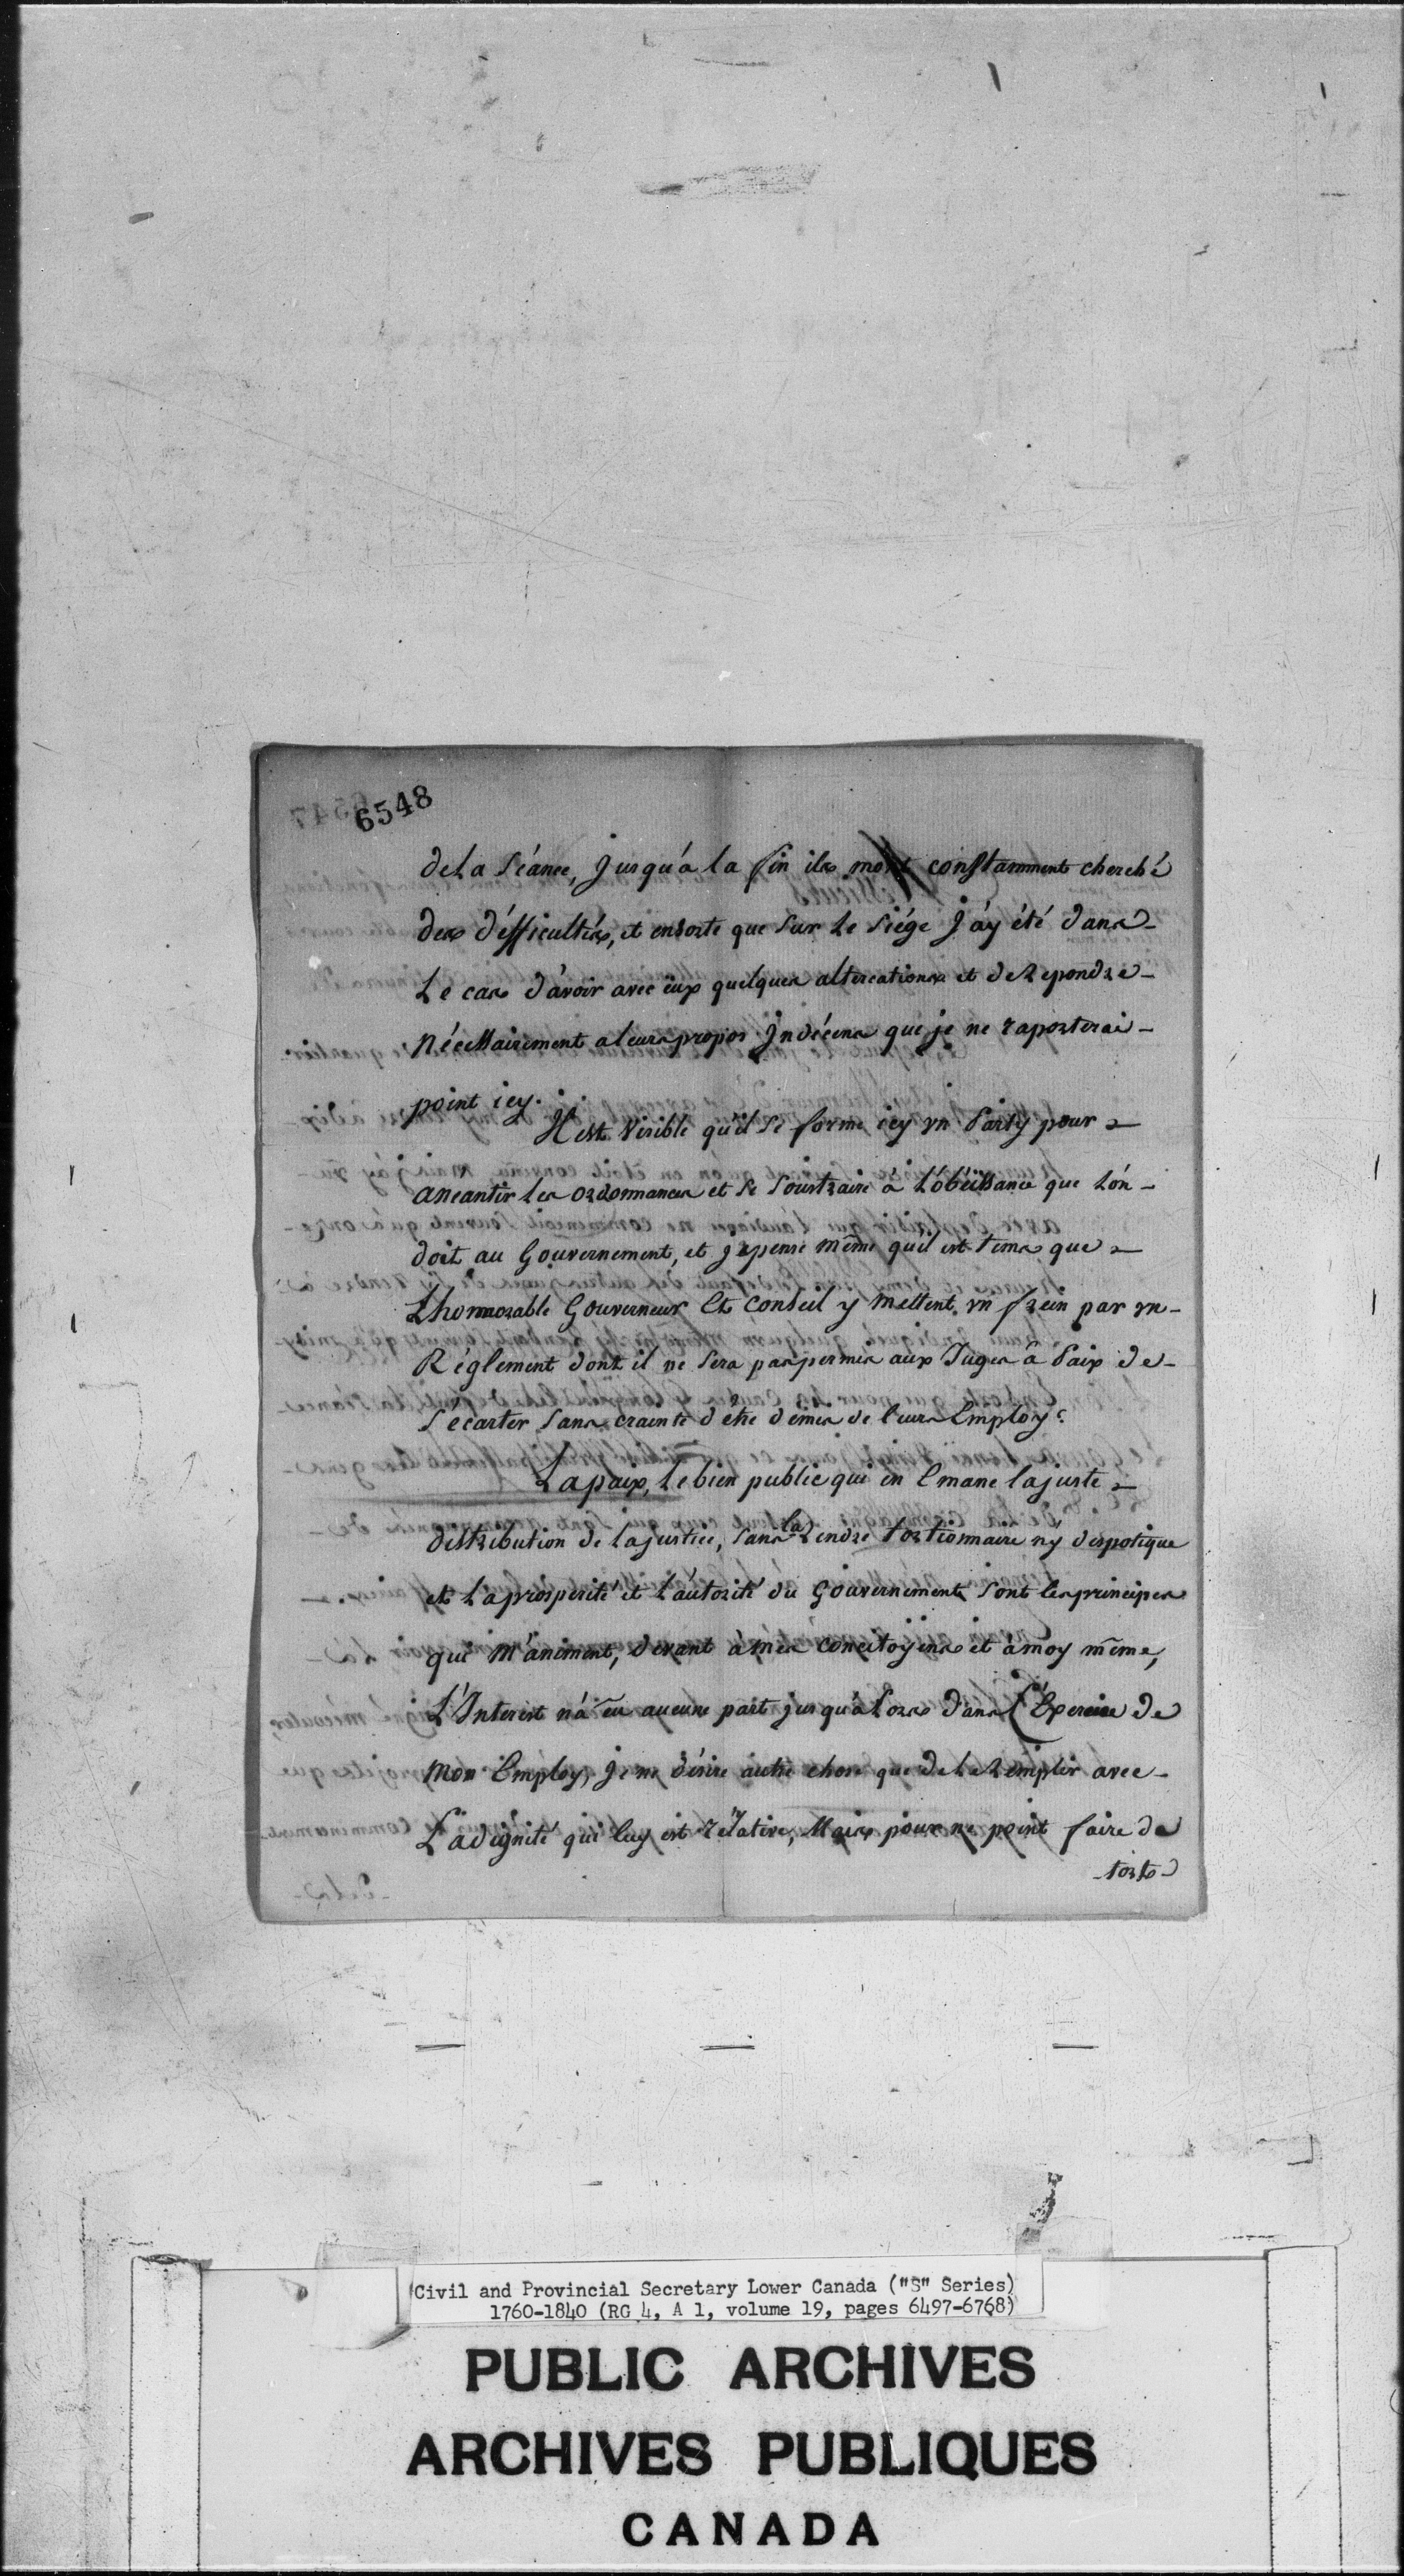 6548
de La Séance, jusqu'a la fin ils mont constamment cherché
des d'éfficultés, et ensorte que sur Le siége J'ay été dans
Le cas d'avoir avec eux quelques altercations et de Repondre
Nécessairement a leurs propos Jndécens que je ne raporterai
point icy.
Il est visible qu'il se forme icy vn Party pour
aneantir Les ordonnances et se soustraire à L'obéissance que L'on
doit au Gouvernement, et je pense même qu'il est tems que
Lhonnorable Gouverneur Et Conseil y mettent vn frein par vn
Réglement dont il ne sera pas permis aux Juges à Paix de
s'écarter sans crainte d'être demis de leurs Employs.
La paix, Le bien public qui en Emane la juste
distribution de la justice, sans la Rendre tortionnaire n'y despotique
et La prosperité et L'autorité du Gouvernement sont les principes
qui m'animent, devant à mes concitoyens et à moy même,
L'Interest n'a eu aucune part jusqu'a Lors dans L'Exercice de
Mon Employ, je ne désire autre chose que de Le Remplir avec
La dignité qui luy est rélative, Mais pour ne point faire de
tort
Civil and Provincial Secretary Lower Canada ("S" Series)
1760-1840 (RG 4, A 1, volume 19, pages 6497-6768)
PUBLIC ARCHIVES
ARCHIVES PUBLIQUES
CANADA